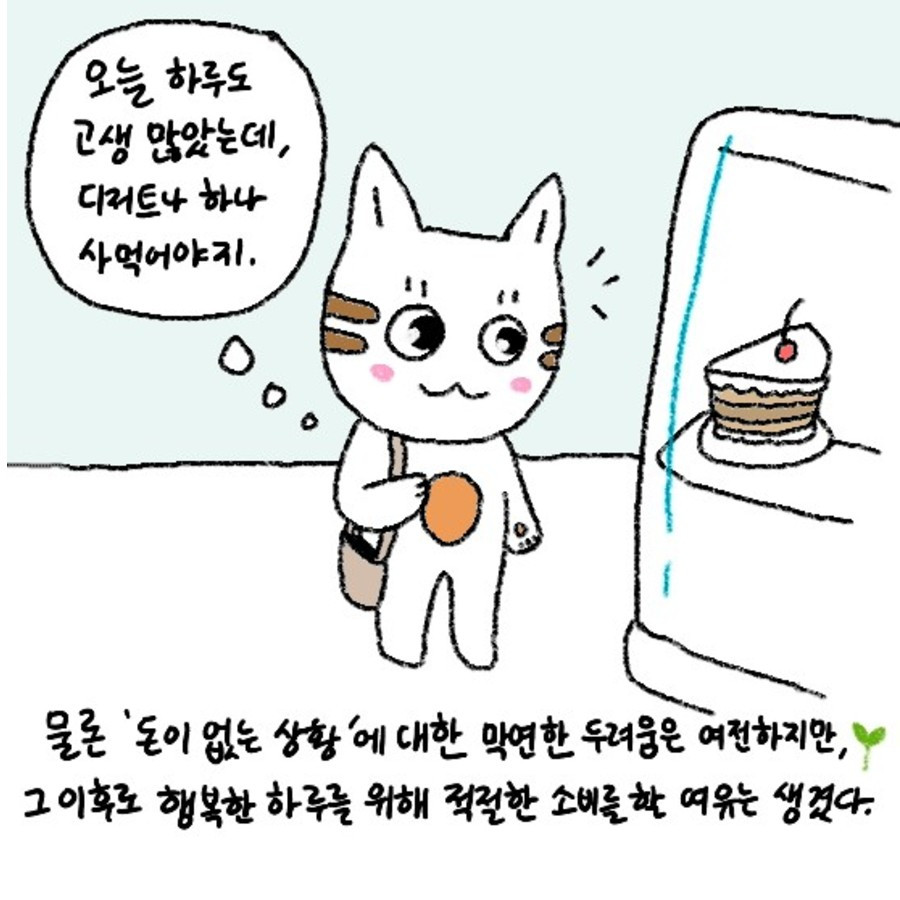 오늘 하루도
고생 많았는데,
디저트나 하나
사먹어야지.
물론 '돈이 없는 상황'에 대한 막연한 두려움은 여전하지만,
그 이후로 행복한 하루를 위해 적절한 소비를 할 여유는 생겼다.